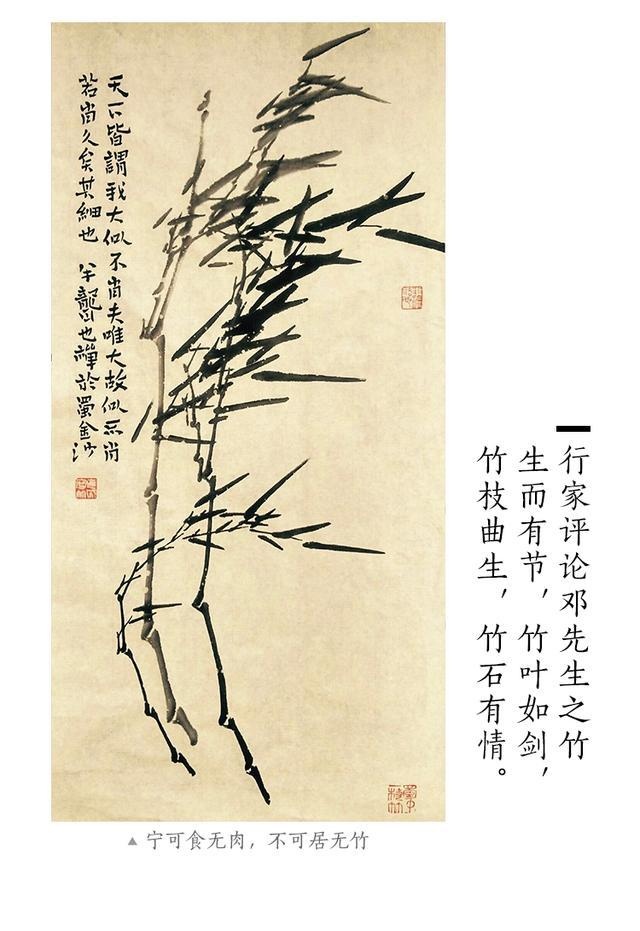 天下皆謂我大似不肖夫唯大故似不肖
若肖久矣其細也 半聾也禪於蜀金沙
行家评论邓先生之竹
生而有节，竹叶如剑，
竹枝曲生，竹石有情。
▲ 宁可食无肉，不可居无竹